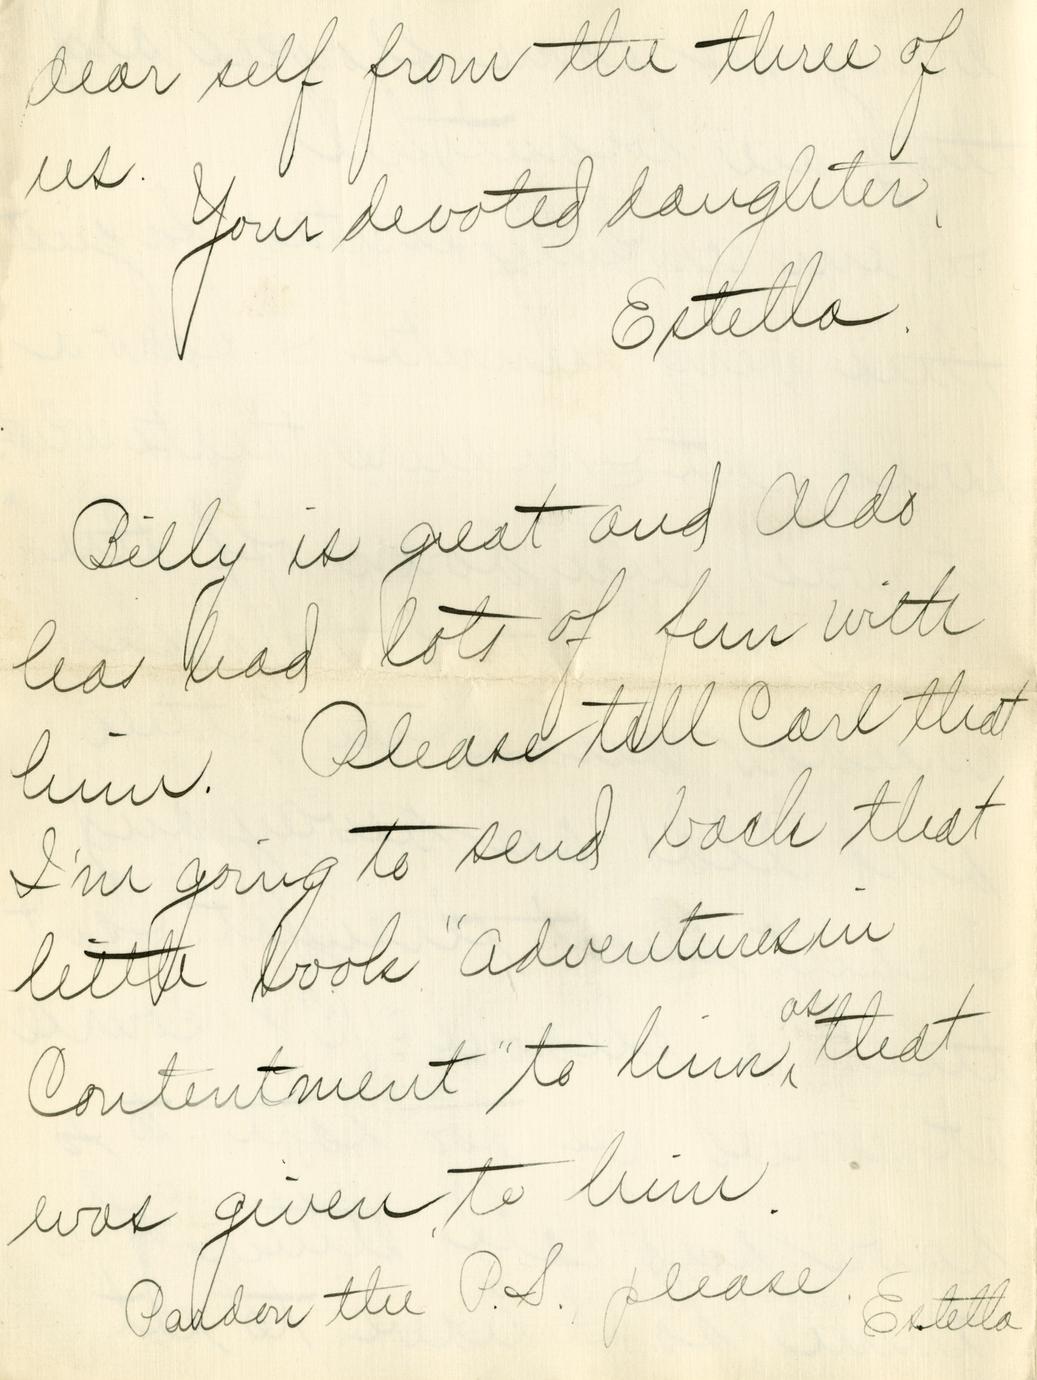 dear self from the three of
us.
Your devoted daughter,
Estella.
Billy is great and Aldo
has had lots of fun with
him. Please tell Carl that
I'm going to send back that
little book "Adventures in
Contentment" to him, as that
was given to him.
Pardon the P.S. please. Estella